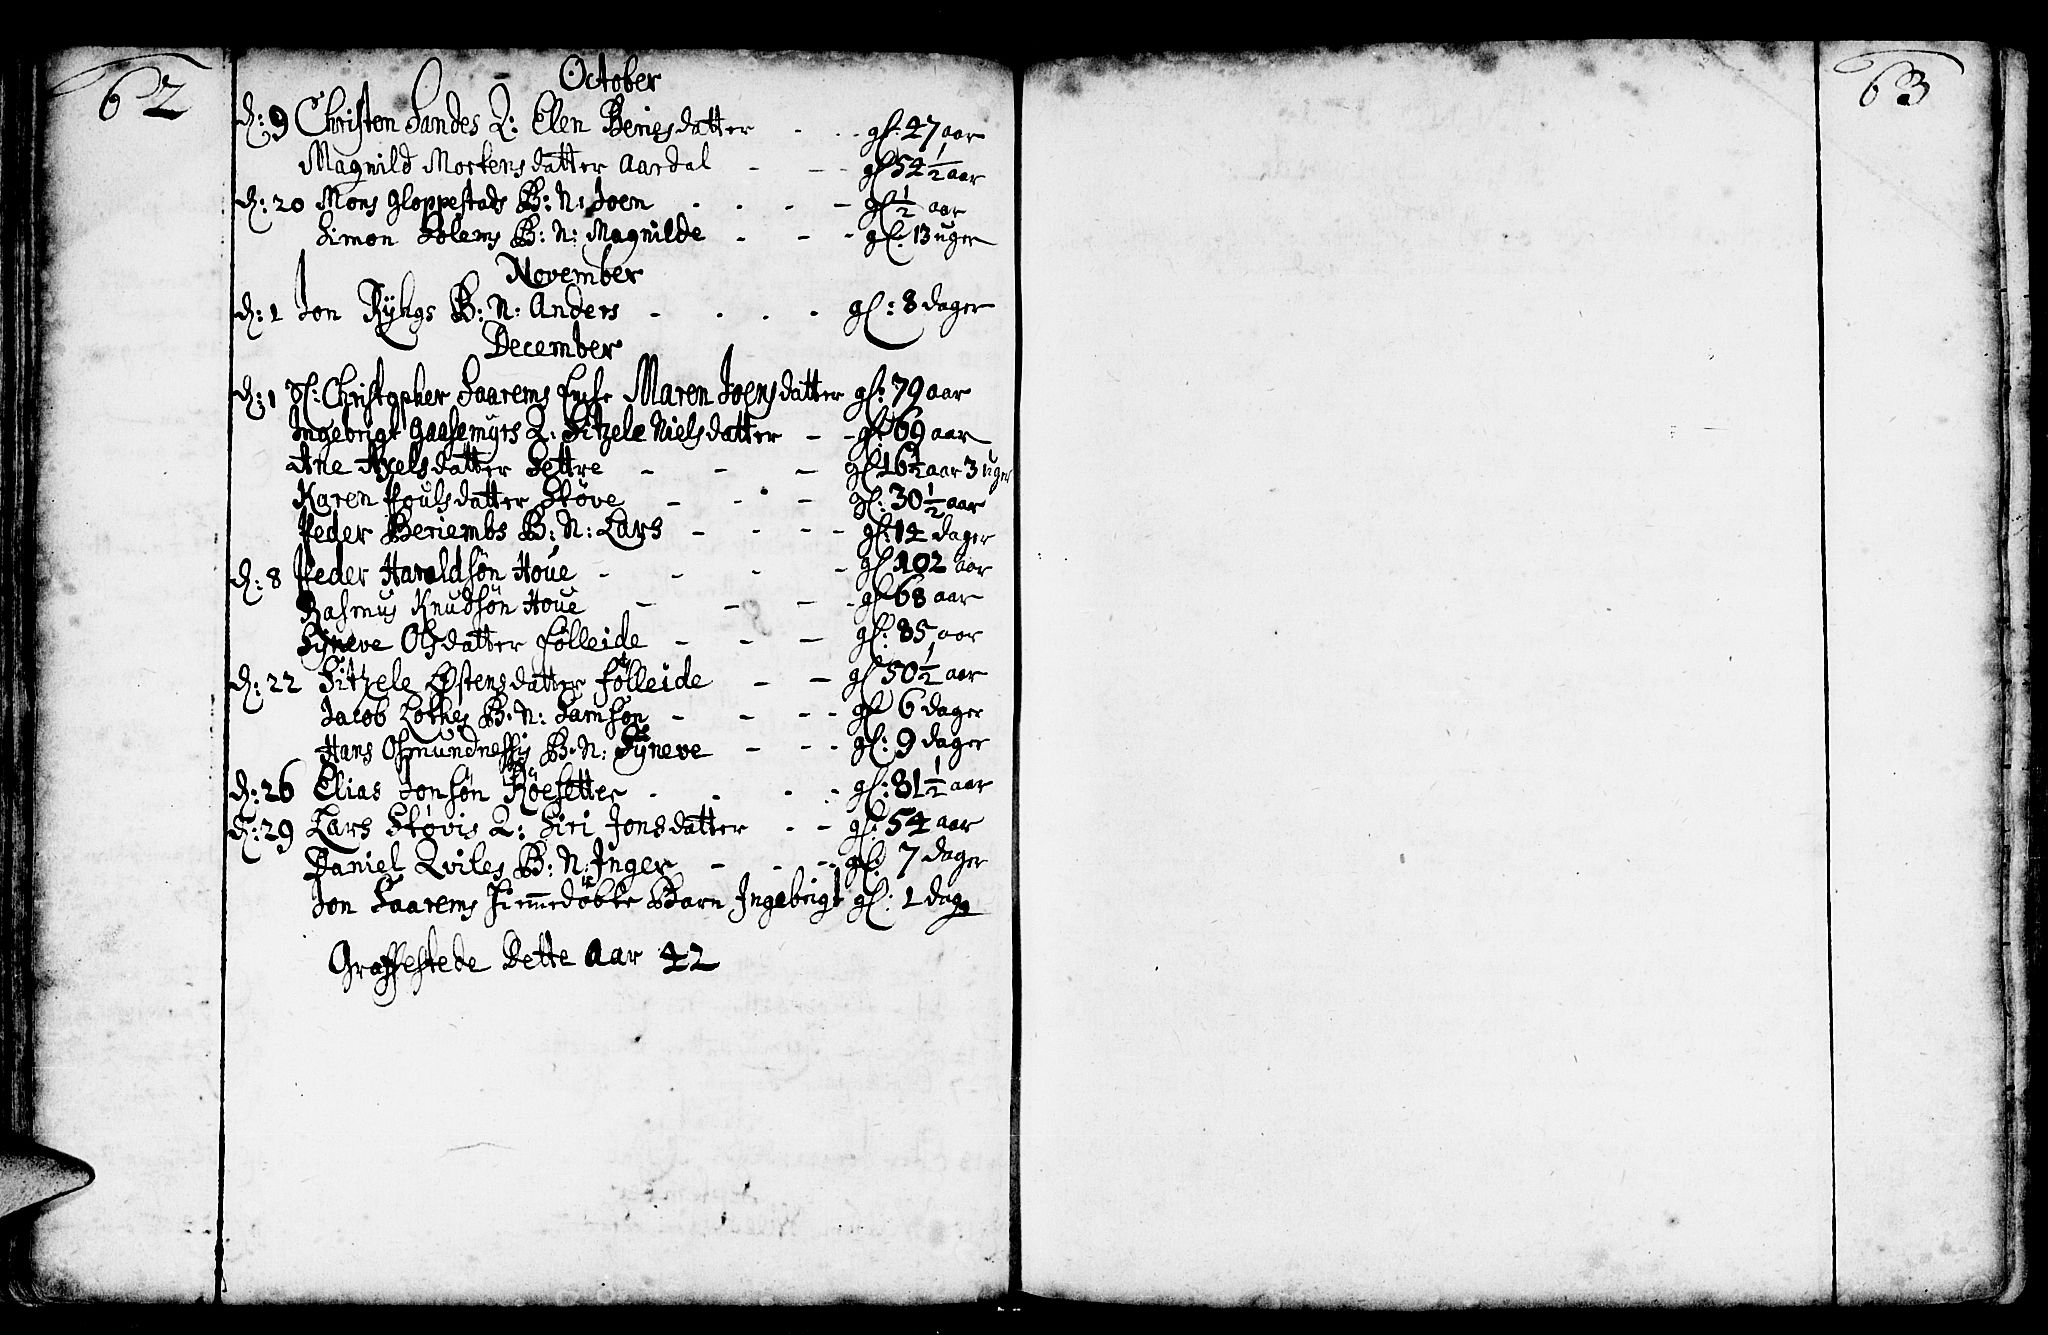 62
October
d: 9 Christen Sandes Q: Elen Beriesdatter - - gl: 47 aar
Magnild Mortensdatter Aardal - - - gl 54 1/2 aar
d: 20 Mons Gloppestads B: N: Joen - - - - gl 1/2 aar
Simon Solems B: N: Magnilde - - - gl: 13 uger
November
d: 1 Jon Rÿhgs B: N: Anders - - - - gl: 8 dager
December
d: 1 Sl: Christopher Saarems Maren Joensdatter gl: 79 aar
Ingebrigt Gaasemÿrs Q: Sitzele Nielsdatter - - gl 69 aar
Ane Axelsdatter Settre - - - gl 16 1/2 aar 3 uger
Karen Poulsdatter Støve - - - - gl: 30 1/2 aar
Peder Beriembs B: N: Lars - - - - gl: 14 dager
d: 8 Peder Haraldsön Houe - - - - gl 102 aar
Rasmus Knudsön Houe - - - - gl 68 aar
Sÿneve Olsdatter Følleide - - - gl: 85 aar
d: 22 Sitzele Østensdatter Følleide - - gl 50 1/2 aar
Jacob Lothes B: N: Samson - - - - gl 6 dager
Hans Osmundnessis B: N: Sÿneve - - - gl: 9 dager
d: 26 Elias Jonsön Röesetter - - - - gl: 81 1/2 aar
d: 29 Lars Støvis Q: Siri Jonsdatter - - gl: 54 aar
Daniel Qviles B: N: Inger - - - gl: 7 dager
Jon Saarems Hiemmedöbte Barn Ingebrigt gl: 1 dag
Graffestede Dette Aar 42
63